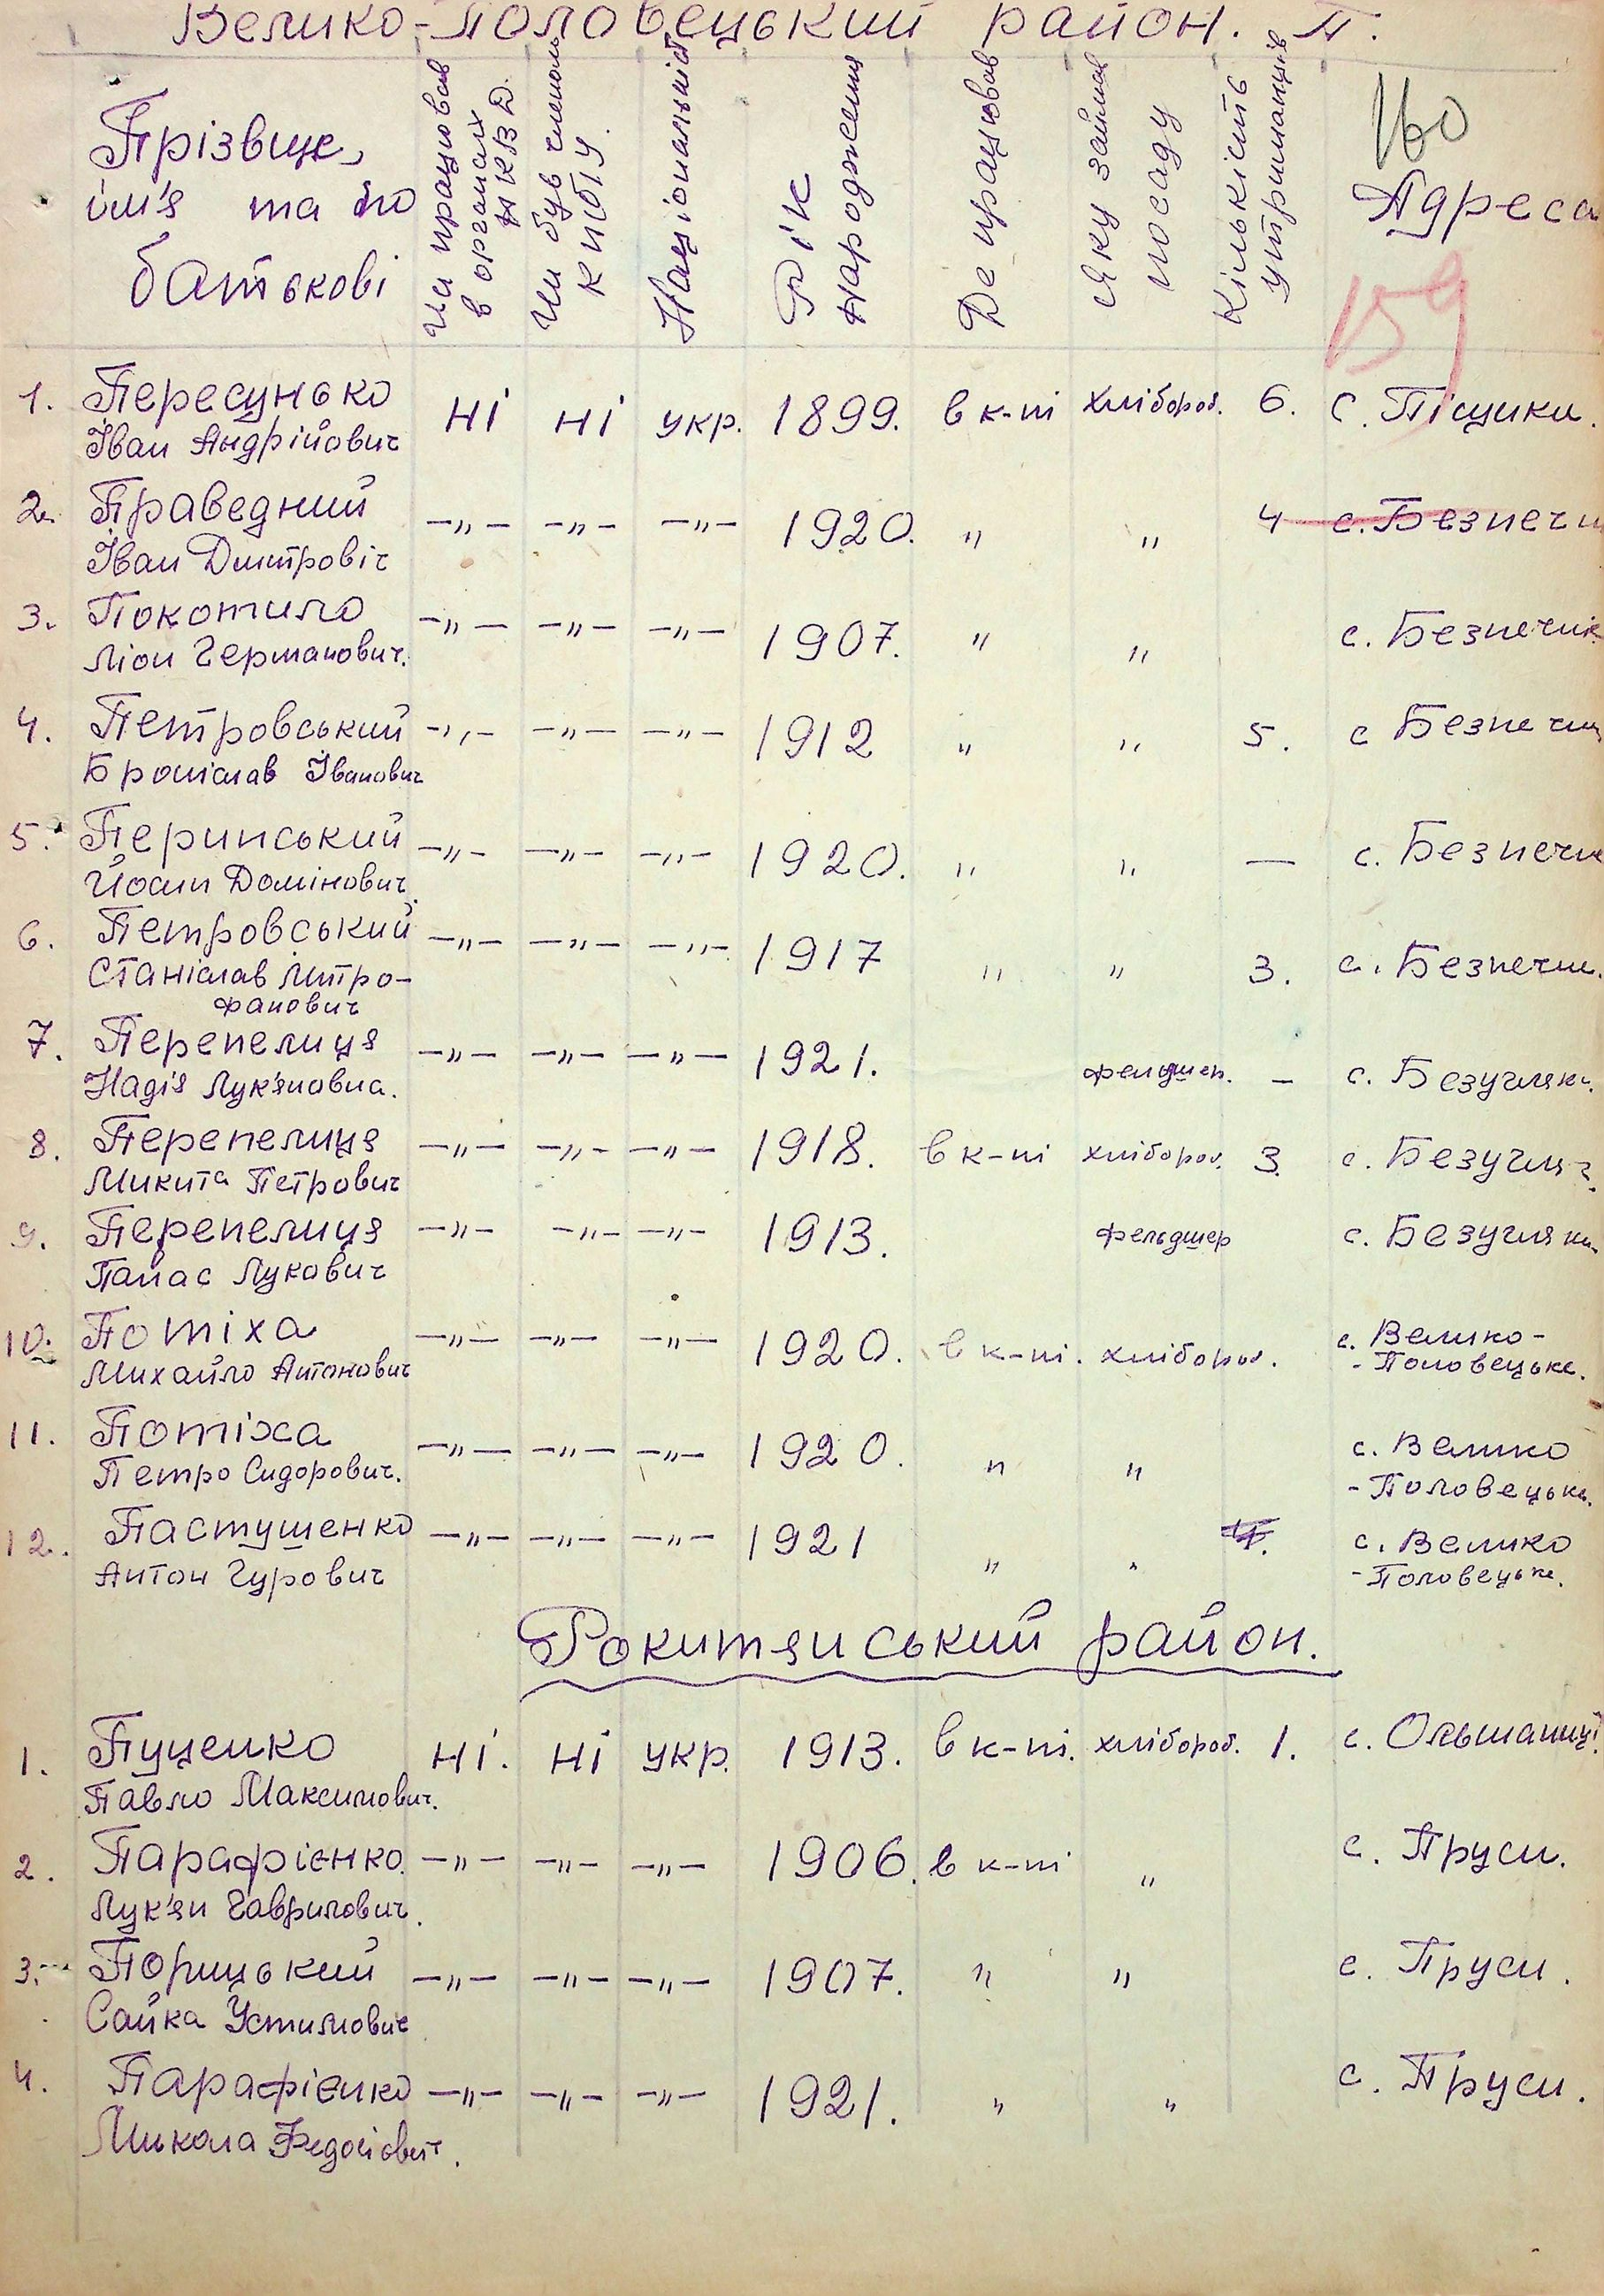 Велико-Половецький район. П.
Прізвище,
ім'я та по
батькові
Чи працював
в органах
НКВД.
Чи був членом
КП(б)У.
Національність
Рік
народження
Де працював
Яку займав
посаду
Кількість
утриманців
160
Адреса
159
1. Пересунько ні ні укр. 1899. в к-пі хлібороб. 6. с. Піщики.
Іван Андрійович
2. Праведний -„- -„- -„- 1920. „ „ 4 с. Безпечн
Іван Дмитровіч
3. Покотило -„- -„- -„- 1907. „ „ с. Безпечне
Ліон Германович.
4. Петровський -„- -„- -„- 1912 „ „ 5. с Безпечн
Броніслав Іванович
5. Перинський -„- -„- -„- 1920. „ „ — с. Безпечн
Йосип Домінович.
6. Петровський -„- -„- -„- 1917 „ „ 3. с. Безпечн.
Станіслав Митро-
фанович
7. Перепелиця -„- -„- -„- 1921. фельдшер. - с. Безугляки.
Надія Лук'яновна.
8. Перепелиця -„- -„- -„- 1918. в к-пі хлібороб. 3. с. Безугля
Микита Петрович
9. Перепелиця -„- -„- -„- 1913. фельдшер с. Безугляки
Панас Лукович
10. Потіха -„- -„- -„- 1920. в к-пі. хлібороб. с. Велико-
Михайло Антонович -Половецьке.
11. Потіха -„- -„- -„- 1920. „ „ с. Велико
Петро Сидорович. -Половецьке.
12. Пастушенко -„- -„- -„- 1921 „ „ с. Велико
Антон Гурович -Половецьке.
Рокитянський район.
1. Пуценко ні. ні укр. 1913. в к-пі. хлібороб. 1. с. Ольшаниці.
Павло Максимович.
2. Парафієнко. -„- -„- -„- 1906. в к-пі „ с. Пруси.
Лук'ян Гаврилович.
3. Порицький -„- -„- -„- 1907. „ „ с. Пруси.
Сайка Устимович
4. Парафієнко -„- -„- -„- 1921. „ „ с. Пруси.
Микола Федосієвич.